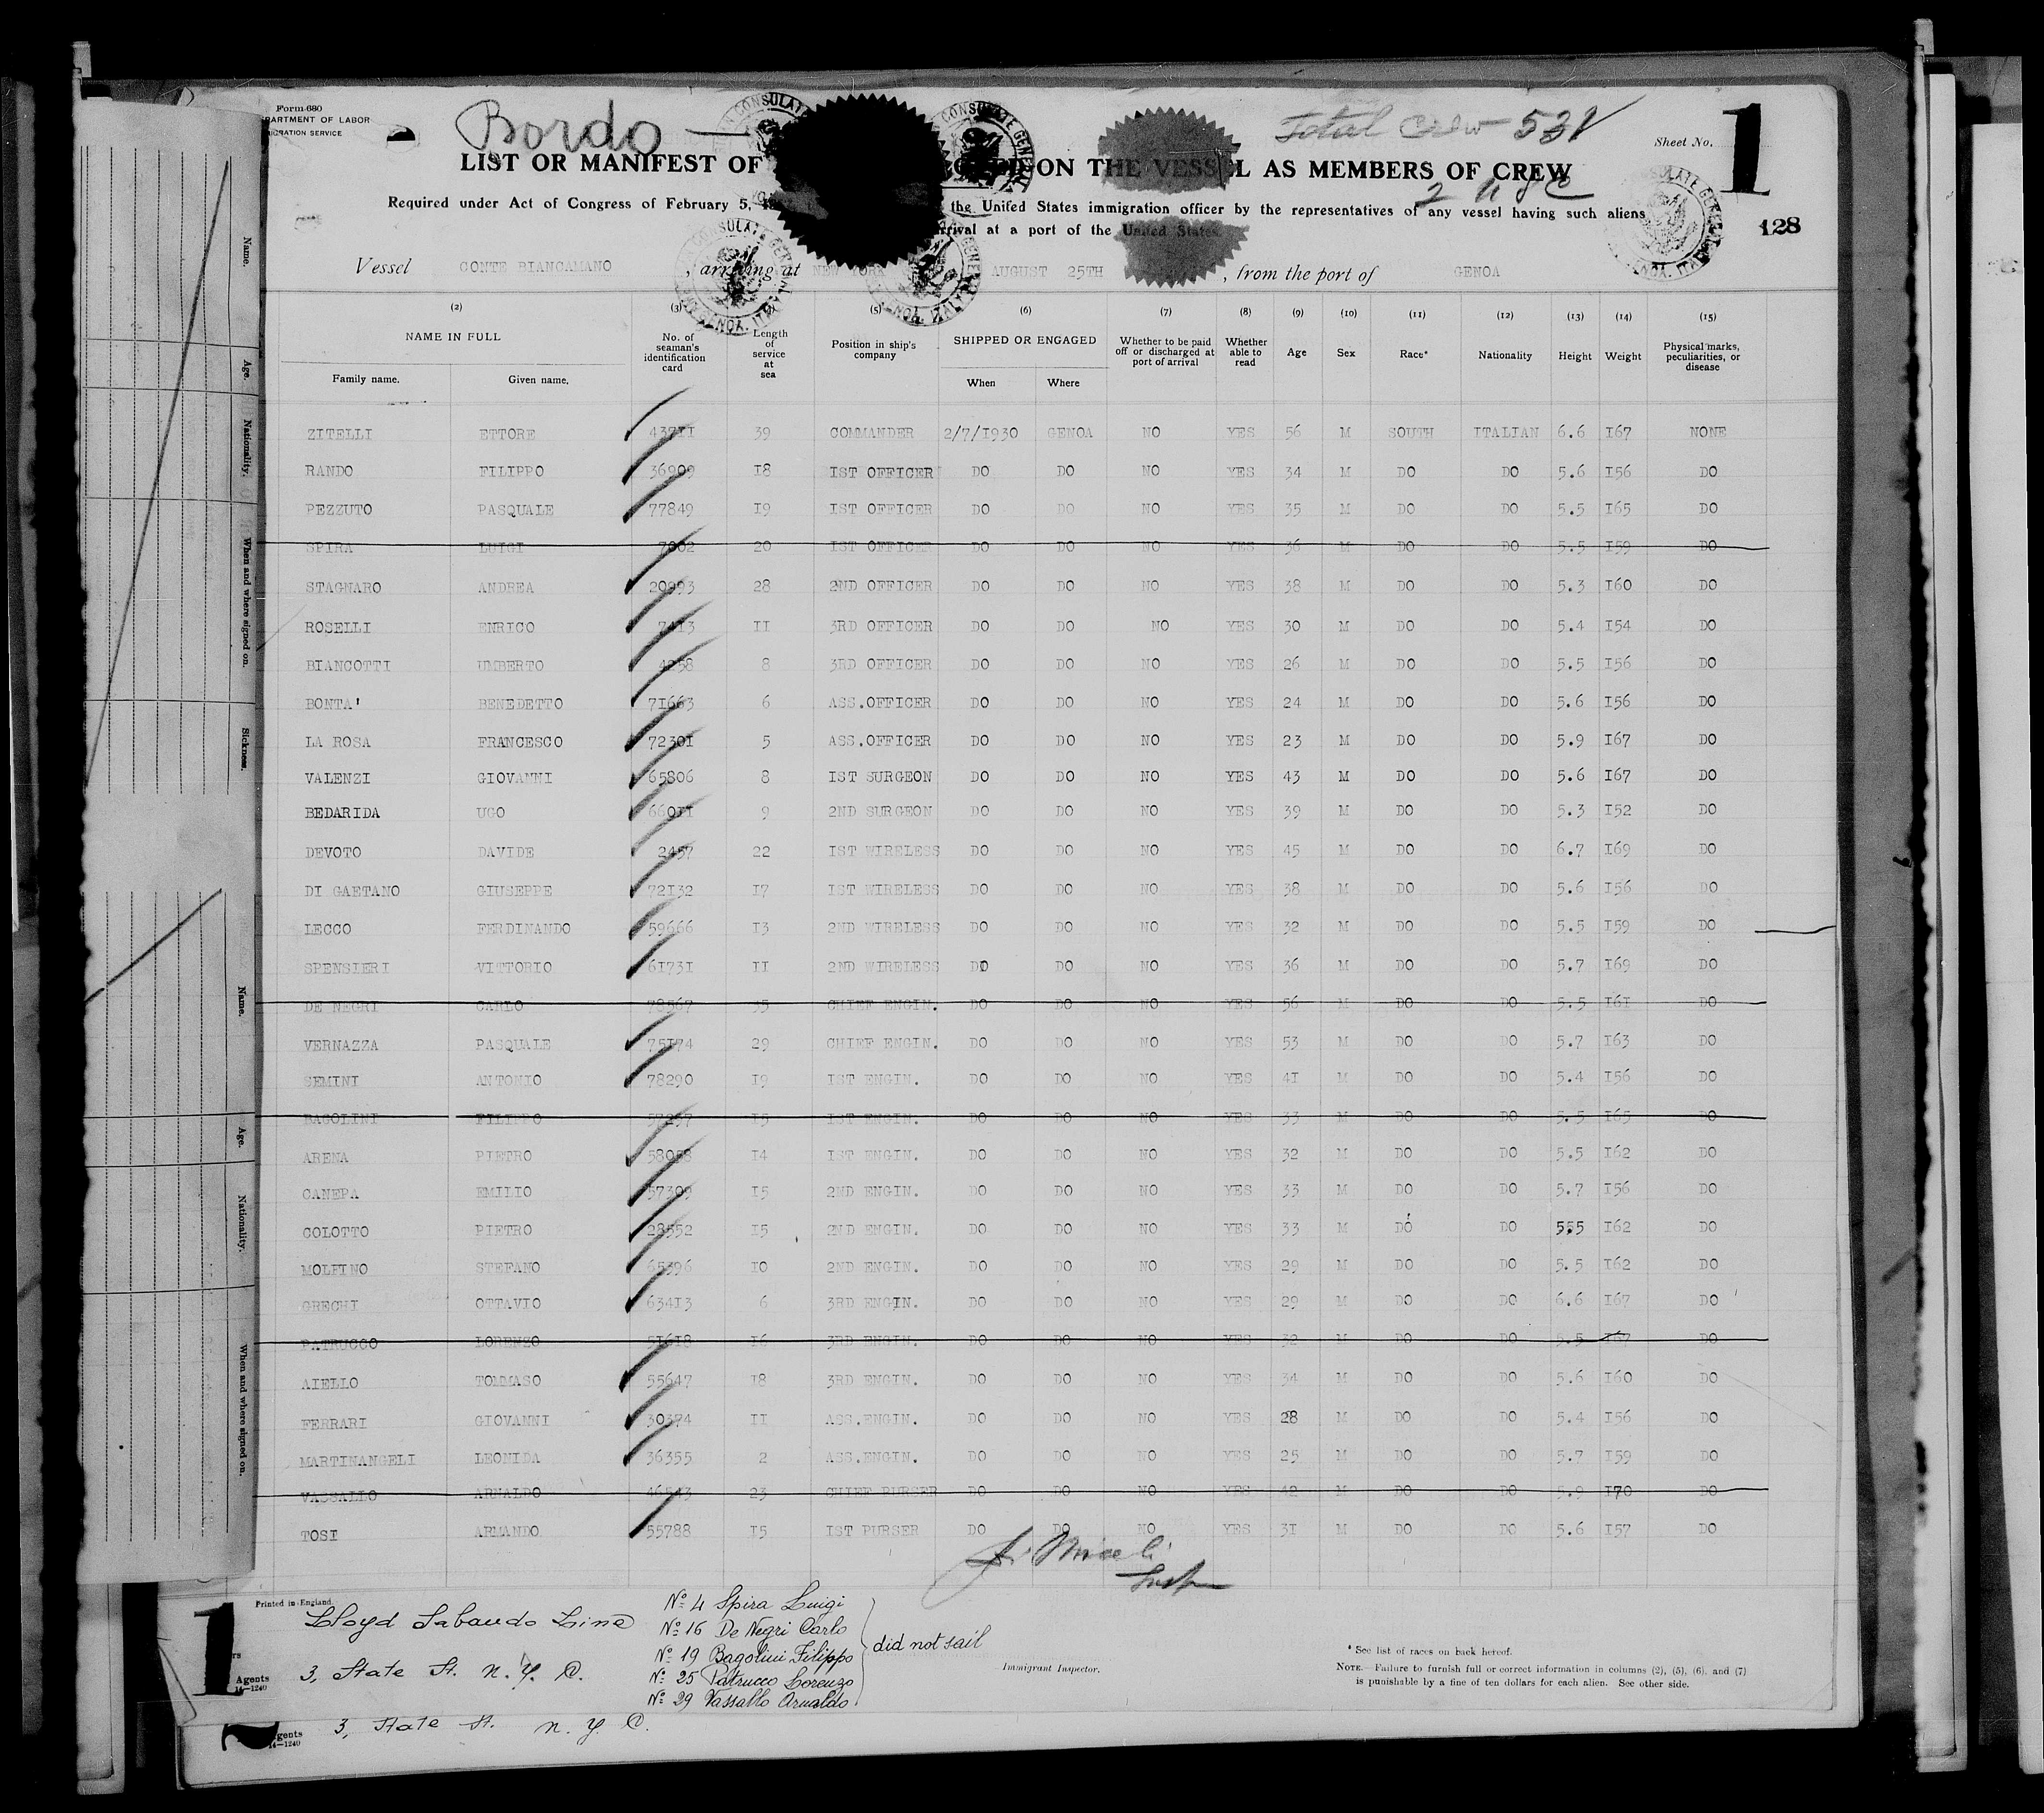 Form 680
DEPARTMENT OF LABOR
IMMIGRATION SERVICE
Bordo
Total Crew 531
Sheet No. 1
LIST OR MANIFEST OF ON THE VESSEL AS MEMBERS OF CREW
Required under Act of Congress of February 5, the United States immigration officer by the representatives of any vessel having such aliens
128
arrival at a port of the United States
Vessel CONTE BIANCAMANO , arriving at NEW YORK AUGUST 25TH , from the port of GENOA
(2) (3) (5) (6) (7) (8) (9) (10) (11) (12) (13) (14) (15)
NAME IN FULL No. of seaman's identification card Length of service at sea Position in ship's company SHIPPED OR ENGAGED Whether to be paid off or discharged at port of arrival Whether able to read Age Sex Race* Nationality Height Weight Physical marks, peculiarities, or disease
Family name. Given name. When Where
ZITELLI ETTORE 43711 39 COMMANDER 2/7/1930 GENOA NO YES 56 M SOUTH ITALIAN 6.6 167 NONE
RANDO FILIPPO 36909 18 IST OFFICER DO DO NO YES 34 M DO DO 5.6 156 DO
PEZZUTO PASQUALE 77849 19 IST OFFICER DO DO NO YES 35 M DO DO 5.5 165 DO
SPIRA LUIGI 7002 20 IST OFFICER DO DO NO YES 36 M DO DO 5.5 159 DO
STAGNARO ANDREA 20993 28 2ND OFFICER DO DO NO YES 38 M DO DO 5.3 160 DO
ROSELLI ENRICO 7413 11 3RD OFFICER DO DO NO YES 30 M DO DO 5.4 154 DO
BIANCOTTI UMBERTO 8 3RD OFFICER DO DO NO YES 26 M DO DO 5.5 156 DO
BONTA' BENEDETTO 71663 6 ASS.OFFICER DO DO NO YES 24 M DO DO 5.6 156 DO
LA ROSA FRANCESCO 72301 5 ASS.OFFICER DO DO NO YES 23 M DO DO 5.9 167 DO
VALENZI GIOVANNI 65806 8 IST SURGEON DO DO NO YES 43 M DO DO 5.6 167 DO
BEDARIDA UGO 66011 9 2ND SURGEON DO DO NO YES 39 M DO DO 5.3 152 DO
DEVOTO DAVIDE 2457 22 IST WIRELESS DO DO NO YES 45 M DO DO 6.7 169 DO
DI GAETANO GIUSEPPE 72132 17 IST WIRELESS DO DO NO YES 38 M DO DO 5.6 156 DO
LECCO FERDINANDO 59666 13 2ND WIRELESS DO DO NO YES 32 M DO DO 5.5 159 DO
SPENSIERI VITTORIO 61731 11 2ND WIRELESS DO DO NO YES 36 M DO DO 5.7 169 DO
DE NEGRI CARLO 78567 35 CHIEF ENGIN. DO DO NO YES 56 M DO DO 5.5 161 DO
VERNAZZA PASQUALE 75174 29 CHIEF ENGIN. DO DO NO YES 53 M DO DO 5.7 163 DO
SEMINI ANTONIO 78290 19 IST ENGIN. DO DO NO YES 41 M DO DO 5.4 156 DO
BAGOLINI FILIPPO 57257 15 IST ENGIN. DO DO NO YES 33 M DO DO 5.5 165 DO
ARENA PIETRO 58058 14 IST ENGIN. DO DO NO YES 32 M DO DO 5.5 162 DO
CANEPA EMILIO 57309 15 2ND ENGIN. DO DO NO YES 33 M DO DO 5.7 156 DO
COLOTTO PIETRO 28552 15 2ND ENGIN. DO DO NO YES 33 M DO DO 5.5 162 DO
MOLFINO STEFANO 65396 10 2ND ENGIN. DO DO NO YES 29 M DO DO 5.5 162 DO
GRECHI OTTAVIO 63413 6 3RD ENGIN. DO DO NO YES 29 M DO DO 6.6 167 DO
PATRUCCO LORENZO 51618 16 3RD ENGIN. DO DO NO YES 32 M DO DO 5.5 167 DO
AIELLO TOMMASO 55647 18 3RD ENGIN. DO DO NO YES 34 M DO DO 5.6 160 DO
FERRARI GIOVANNI 30374 11 ASS.ENGIN. DO DO NO YES 28 M DO DO 5.4 156 DO
MARTINANGELI LEONIDA 36355 2 ASS.ENGIN. DO DO NO YES 25 M DO DO 5.7 159 DO
VASSALLO ARNALDO 46543 23 CHIEF PURSER DO DO NO YES 42 M DO DO 5.9 170 DO
TOSI ARMANDO 55788 15 IST PURSER DO DO NO YES 31 M DO DO 5.6 157 DO
Printed in England.
Lloyd Sabaudo Line
3, State St. N.Y.C.
Nº 4 Spira Luigi
Nº 16 De Negri Carlo
Nº 19 Bagolini Filippo
Nº 25 Patrucco Lorenzo
Nº 29 Vassallo Arnaldo
did not sail
Immigrant Inspector.
* See list of races on back hereof.
NOTE.—Failure to furnish full or correct information in columns (2), (5), (6), and (7)
is punishable by a fine of ten dollars for each alien. See other side.
1
Agents
14—1240
3, State St. N.Y.C.
Agents
14—1240
Name.
Age.
Nationality.
When and where signed on.
Sickness.
Name.
Age.
Nationality.
When and where signed on.